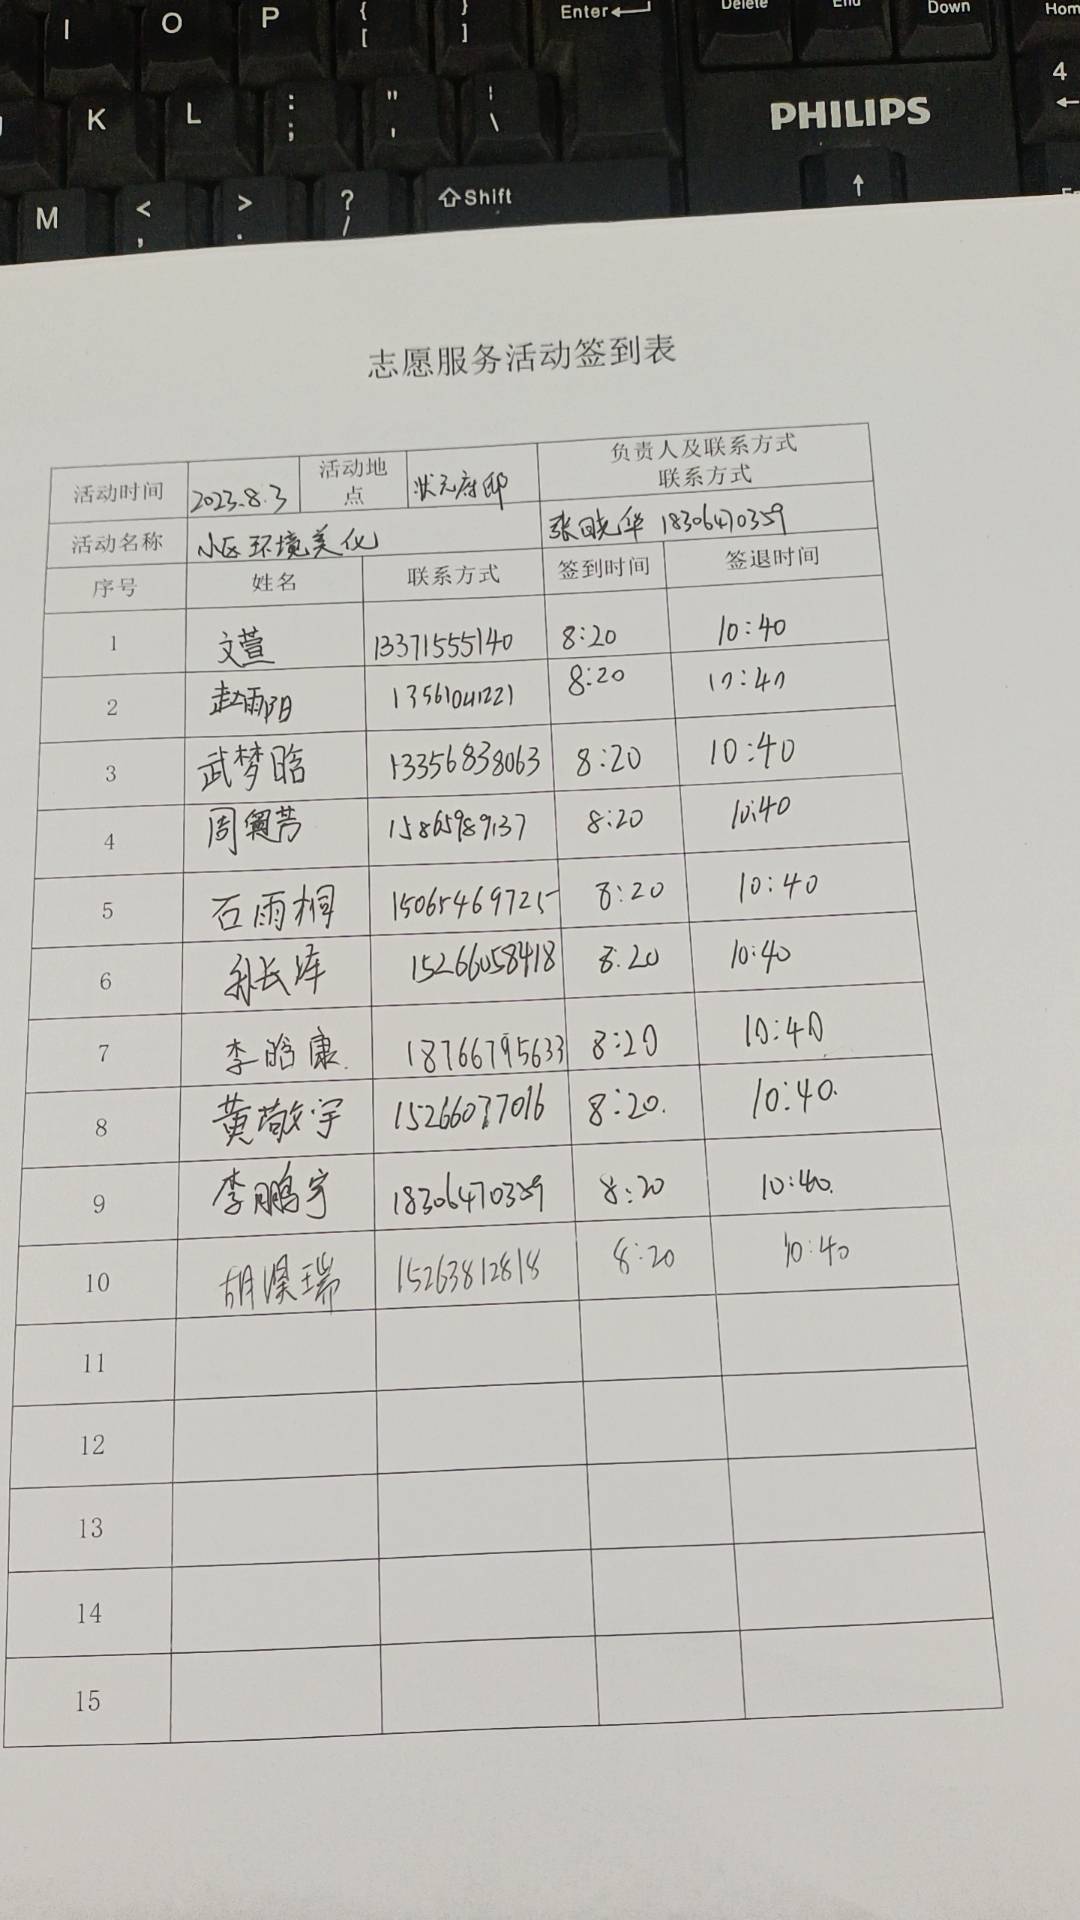 I O P { [ } ] Enter Delete End Down Hom
K L : ; " ' ¦ \ PHILIPS 4
M < , > . ? / Shift
志愿服务活动签到表
活动时间 2023.8.3 活动地点 状元府邸 负责人及联系方式
联系方式
活动名称 小区环境美化 张晓华 18306470359
序号 姓名 联系方式 签到时间 签退时间
1 文萱 13371555140 8:20 10:40
2 赵雨阳 13561041221 8:20 10:40
3 武梦晗 13356838063 8:20 10:40
4 周奥芳 15865989137 8:20 10:40
5 石雨桐 15065469725 8:20 10:40
6 孙长泽 15266058418 8:20 10:40
7 李晗康 18766795633 8:20 10:40
8 黄敬宇 15266077016 8:20 10:40
9 李鹏宇 18306470359 8:20 10:40
10 胡瑞 15263812818 8:20 10:40
11
12
13
14
15